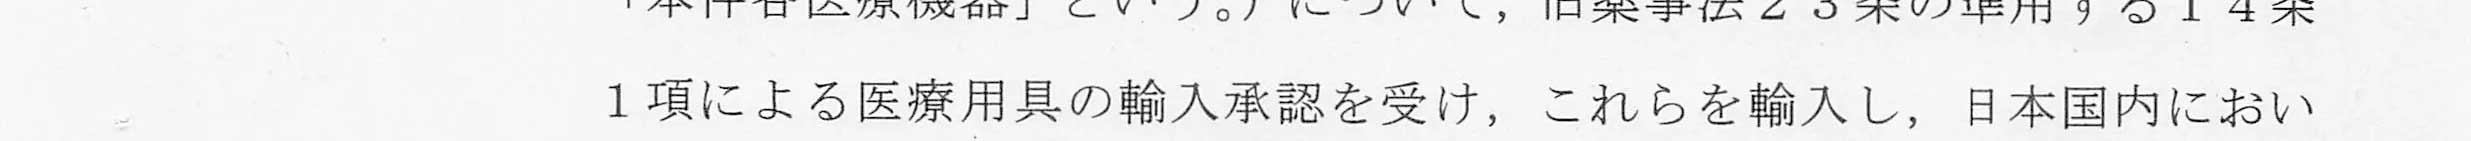 「本件各医療機器」という。）について，旧薬事法２３条の準用する１４条
１項による医療用具の輸入承認を受け，これらを輸入し，日本国内におい